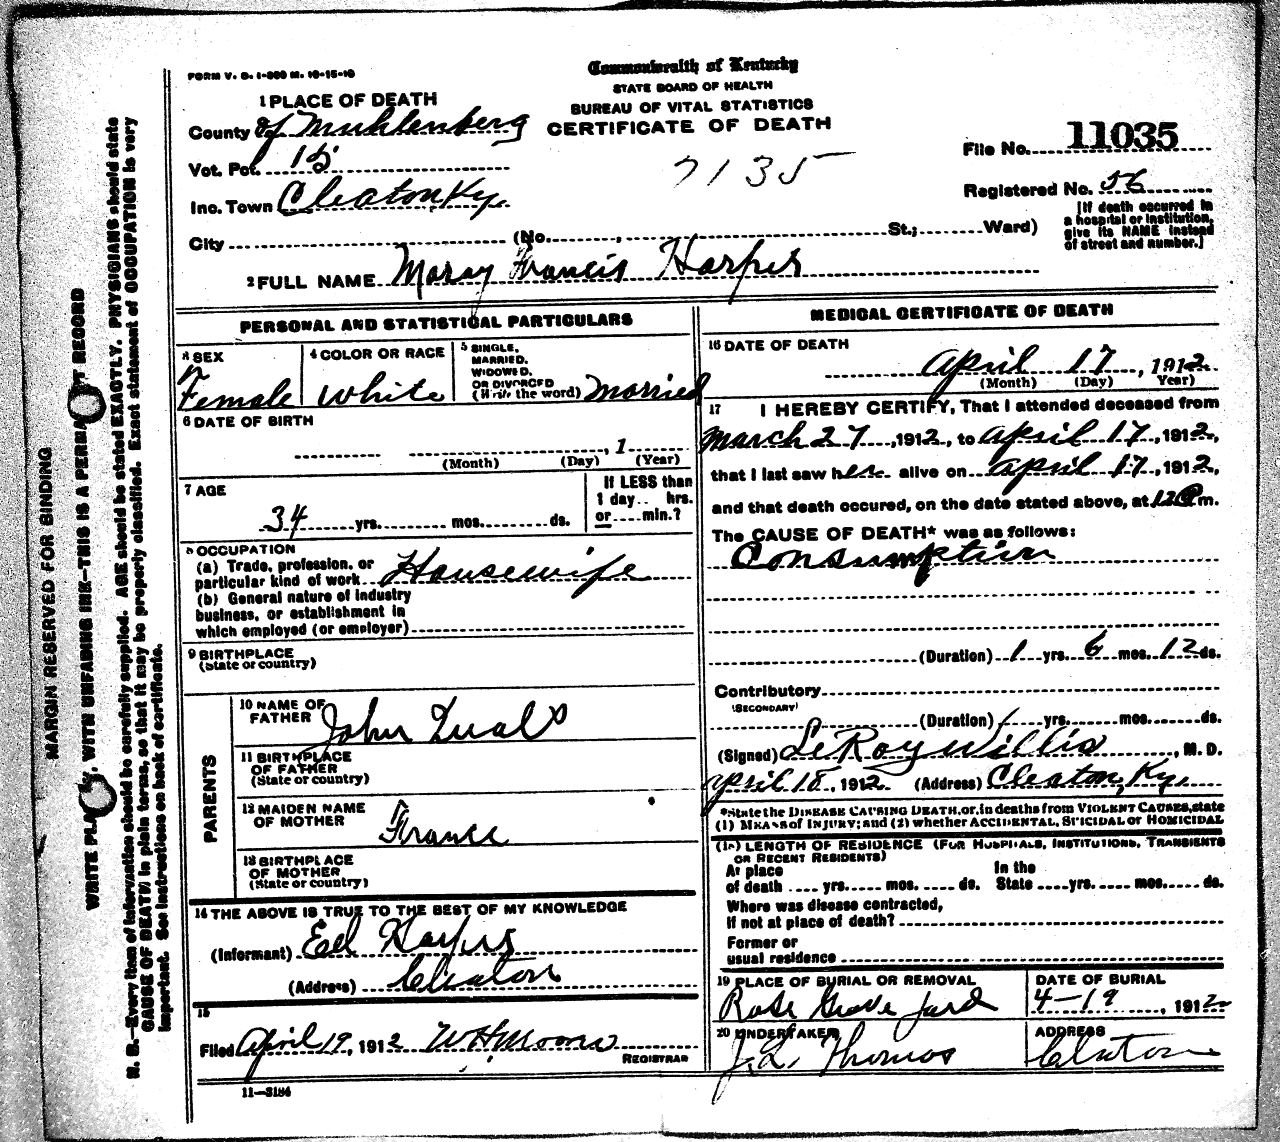 FORM V. S. 1-300 M. 10-15-10
Commonwealth of Kentucky
STATE BOARD OF HEALTH
BUREAU OF VITAL STATISTICS
CERTIFICATE OF DEATH
7135
File No. 11035
Registered No. 56
[If death occurred in
a hospital or institution,
give its NAME instead
of street and number.]
1 PLACE OF DEATH
County of Muhlenberg
Vot. Pct. 15
Inc. Town Cleaton Ky.
City (No. , St.; Ward)
2 FULL NAME Maray Francis Harper
PERSONAL AND STATISTICAL PARTICULARS
3 SEX
Female
4 COLOR OR RACE
White
5 SINGLE,
MARRIED,
WIDOWED,
OR DIVORCED
(Write the word) Married
6 DATE OF BIRTH
, 1
(Month) (Day) (Year)
7 AGE
34 yrs. mos. ds.
If LESS than
1 day .. hrs.
or .... min.?
8 OCCUPATION
(a) Trade, profession, or
particular kind of work Housewife
(b) General nature of industry
business, or establishment in
which employed (or employer)
9 BIRTHPLACE
(State or country)
PARENTS
10 NAME OF
FATHER John
11 BIRTHPLACE
OF FATHER
(State or country)
12 MAIDEN NAME
OF MOTHER France
13 BIRTHPLACE
OF MOTHER
(State or country)
14 THE ABOVE IS TRUE TO THE BEST OF MY KNOWLEDGE
(Informant) Ed Harper
(Address) Cleaton
15
Filed April 19, 1912 W H Moore
REGISTRAR
11—3184
MEDICAL CERTIFICATE OF DEATH
16 DATE OF DEATH
April 17, 1912
(Month) (Day) Year)
17 I HEREBY CERTIFY, That I attended deceased from
March 27, 1912, to April 17, 1912,
that I last saw her alive on April 17, 1912,
and that death occured, on the date stated above, at 12 P m.
The CAUSE OF DEATH* was as follows:
Consumption
(Duration) 1 yrs. 6 mos. 12 ds.
Contributory
(SECONDARY)
(Duration) yrs. mos. ds.
(Signed) LeRoy Willis, M. D.
April 18, 1912 (Address) Cleaton, Ky.
*State the DISEASE CAUSING DEATH, or, in deaths from VIOLENT CAUSES, state
(1) MEANS of INJURY; and (2) whether ACCIDENTAL, SUICIDAL or HOMICIDAL
(18) LENGTH OF RESIDENCE (FOR HOSPITALS, INSTITUTIONS, TRANSIENTS
OR RECENT RESIDENTS)
At place In the
of death .... yrs. mos. .... ds. State .... yrs. .... mos. .... ds.
Where was disease contracted,
If not at place of death?
Former or
usual residence
19 PLACE OF BURIAL OR REMOVAL
Rose Grove Yard
DATE OF BURIAL
4—19, 1912
20 UNDERTAKER
J. L. Thomas
ADDRESS
Cleaton
MARGIN RESERVED FOR BINDING
WRITE PLAINLY, WITH UNFADING INK—THIS IS A PERMANENT RECORD
N. B.—Every item of information should be carefully supplied. AGE should be stated EXACTLY. PHYSICIANS should state
CAUSE OF DEATH in plain terms, so that it may be properly classified. Exact statement of OCCUPATION is very
important. See instructions on back of certificate.